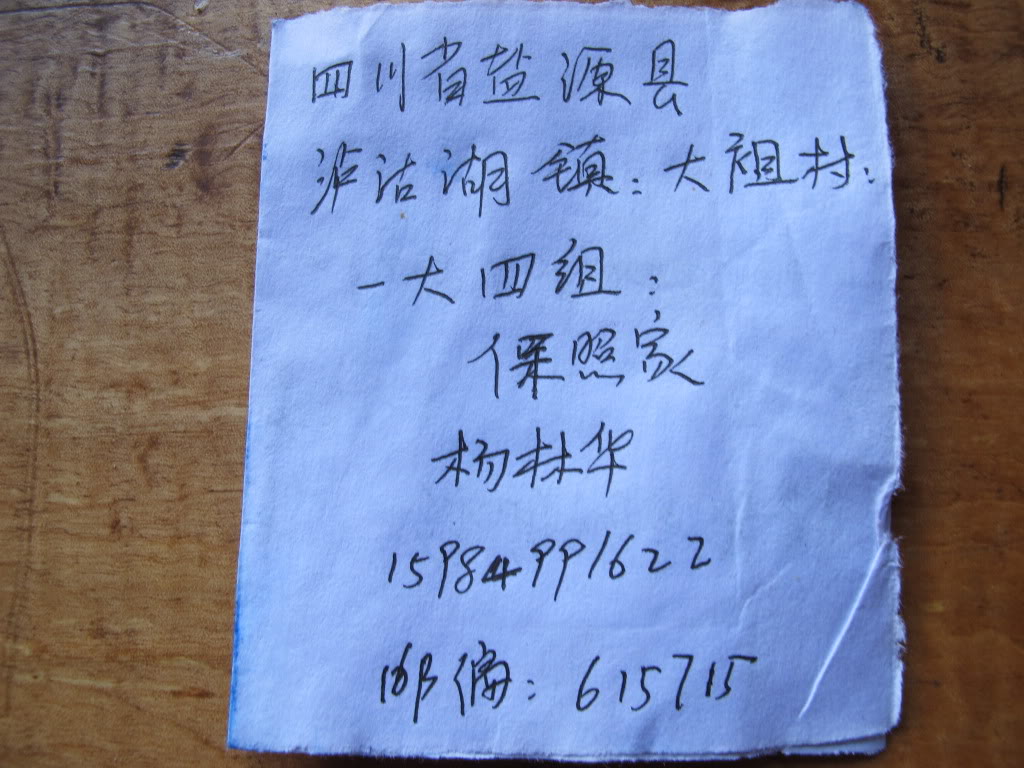 四川省盐源县
泸沽湖镇：大祖村：
一大四组：
保照家
杨林华
15984991622
邮编：615715